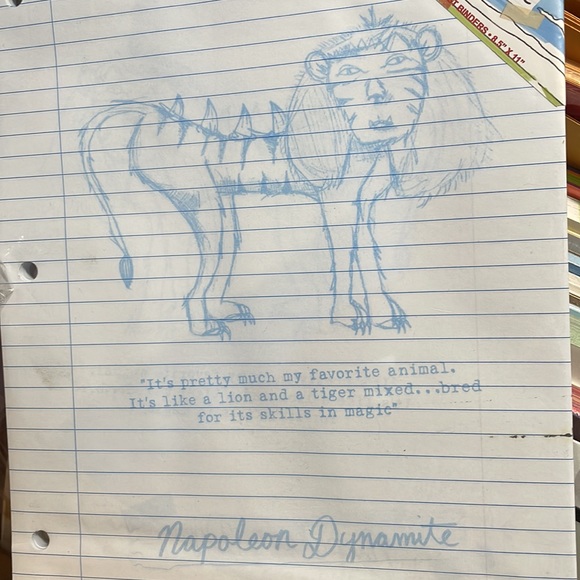 T BINDERS • 8.5" X 11"
"It's pretty much my favorite animal.
It's like a lion and a tiger mixed...bred
for its skills in magic"
Napoleon Dynamite